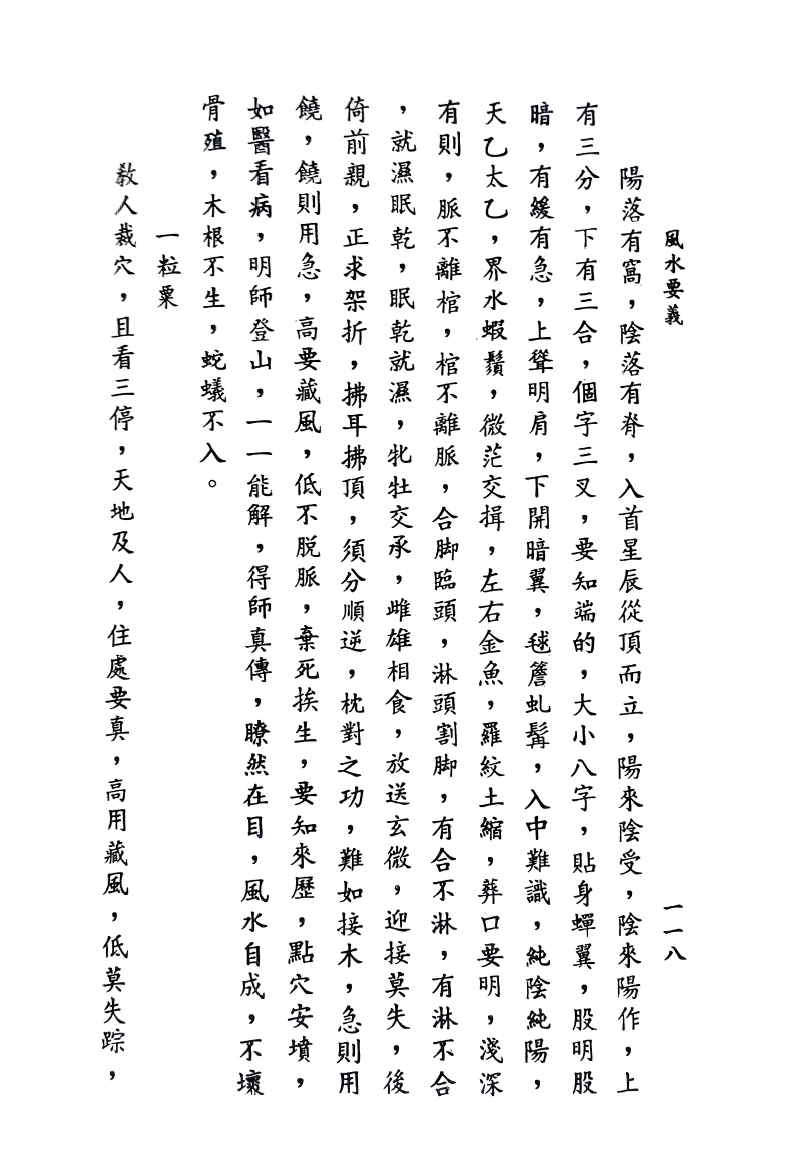 風水要義
一一八
陽落有窩，陰落有脊，入首星辰從頂而立，陽來陰受，陰來陽作，上
有三分，下有三合，個字三叉，要知端的，大小八字，貼身蟬翼，股明股
暗，有緩有急，上聳明肩，下開暗翼，毬簷虬髯，入中難識，純陰純陽，
天乙太乙，界水蝦鬚，微茫交揖，左右金魚，羅紋土縮，葬口要明，淺深
有則，脈不離棺，棺不離脈，合脚臨頭，淋頭割脚，有合不淋，有淋不合
，就濕眠乾，眠乾就濕，牝牡交承，雌雄相食，放送玄微，迎接莫失，後
倚前親，正求架折，拂耳拂頂，須分順逆，枕對之功，難如接木，急則用
饒，饒則用急，高要藏風，低不脱脈，棄死挨生，要知來歷，點穴安墳，
如醫看病，明師登山，一一能解，得師真傳，瞭然在目，風水自成，不壞
骨殖，木根不生，蛇蟻不入。
一粒粟
教人裁穴，且看三停，天地及人，住處要真，高用藏風，低莫失踪，